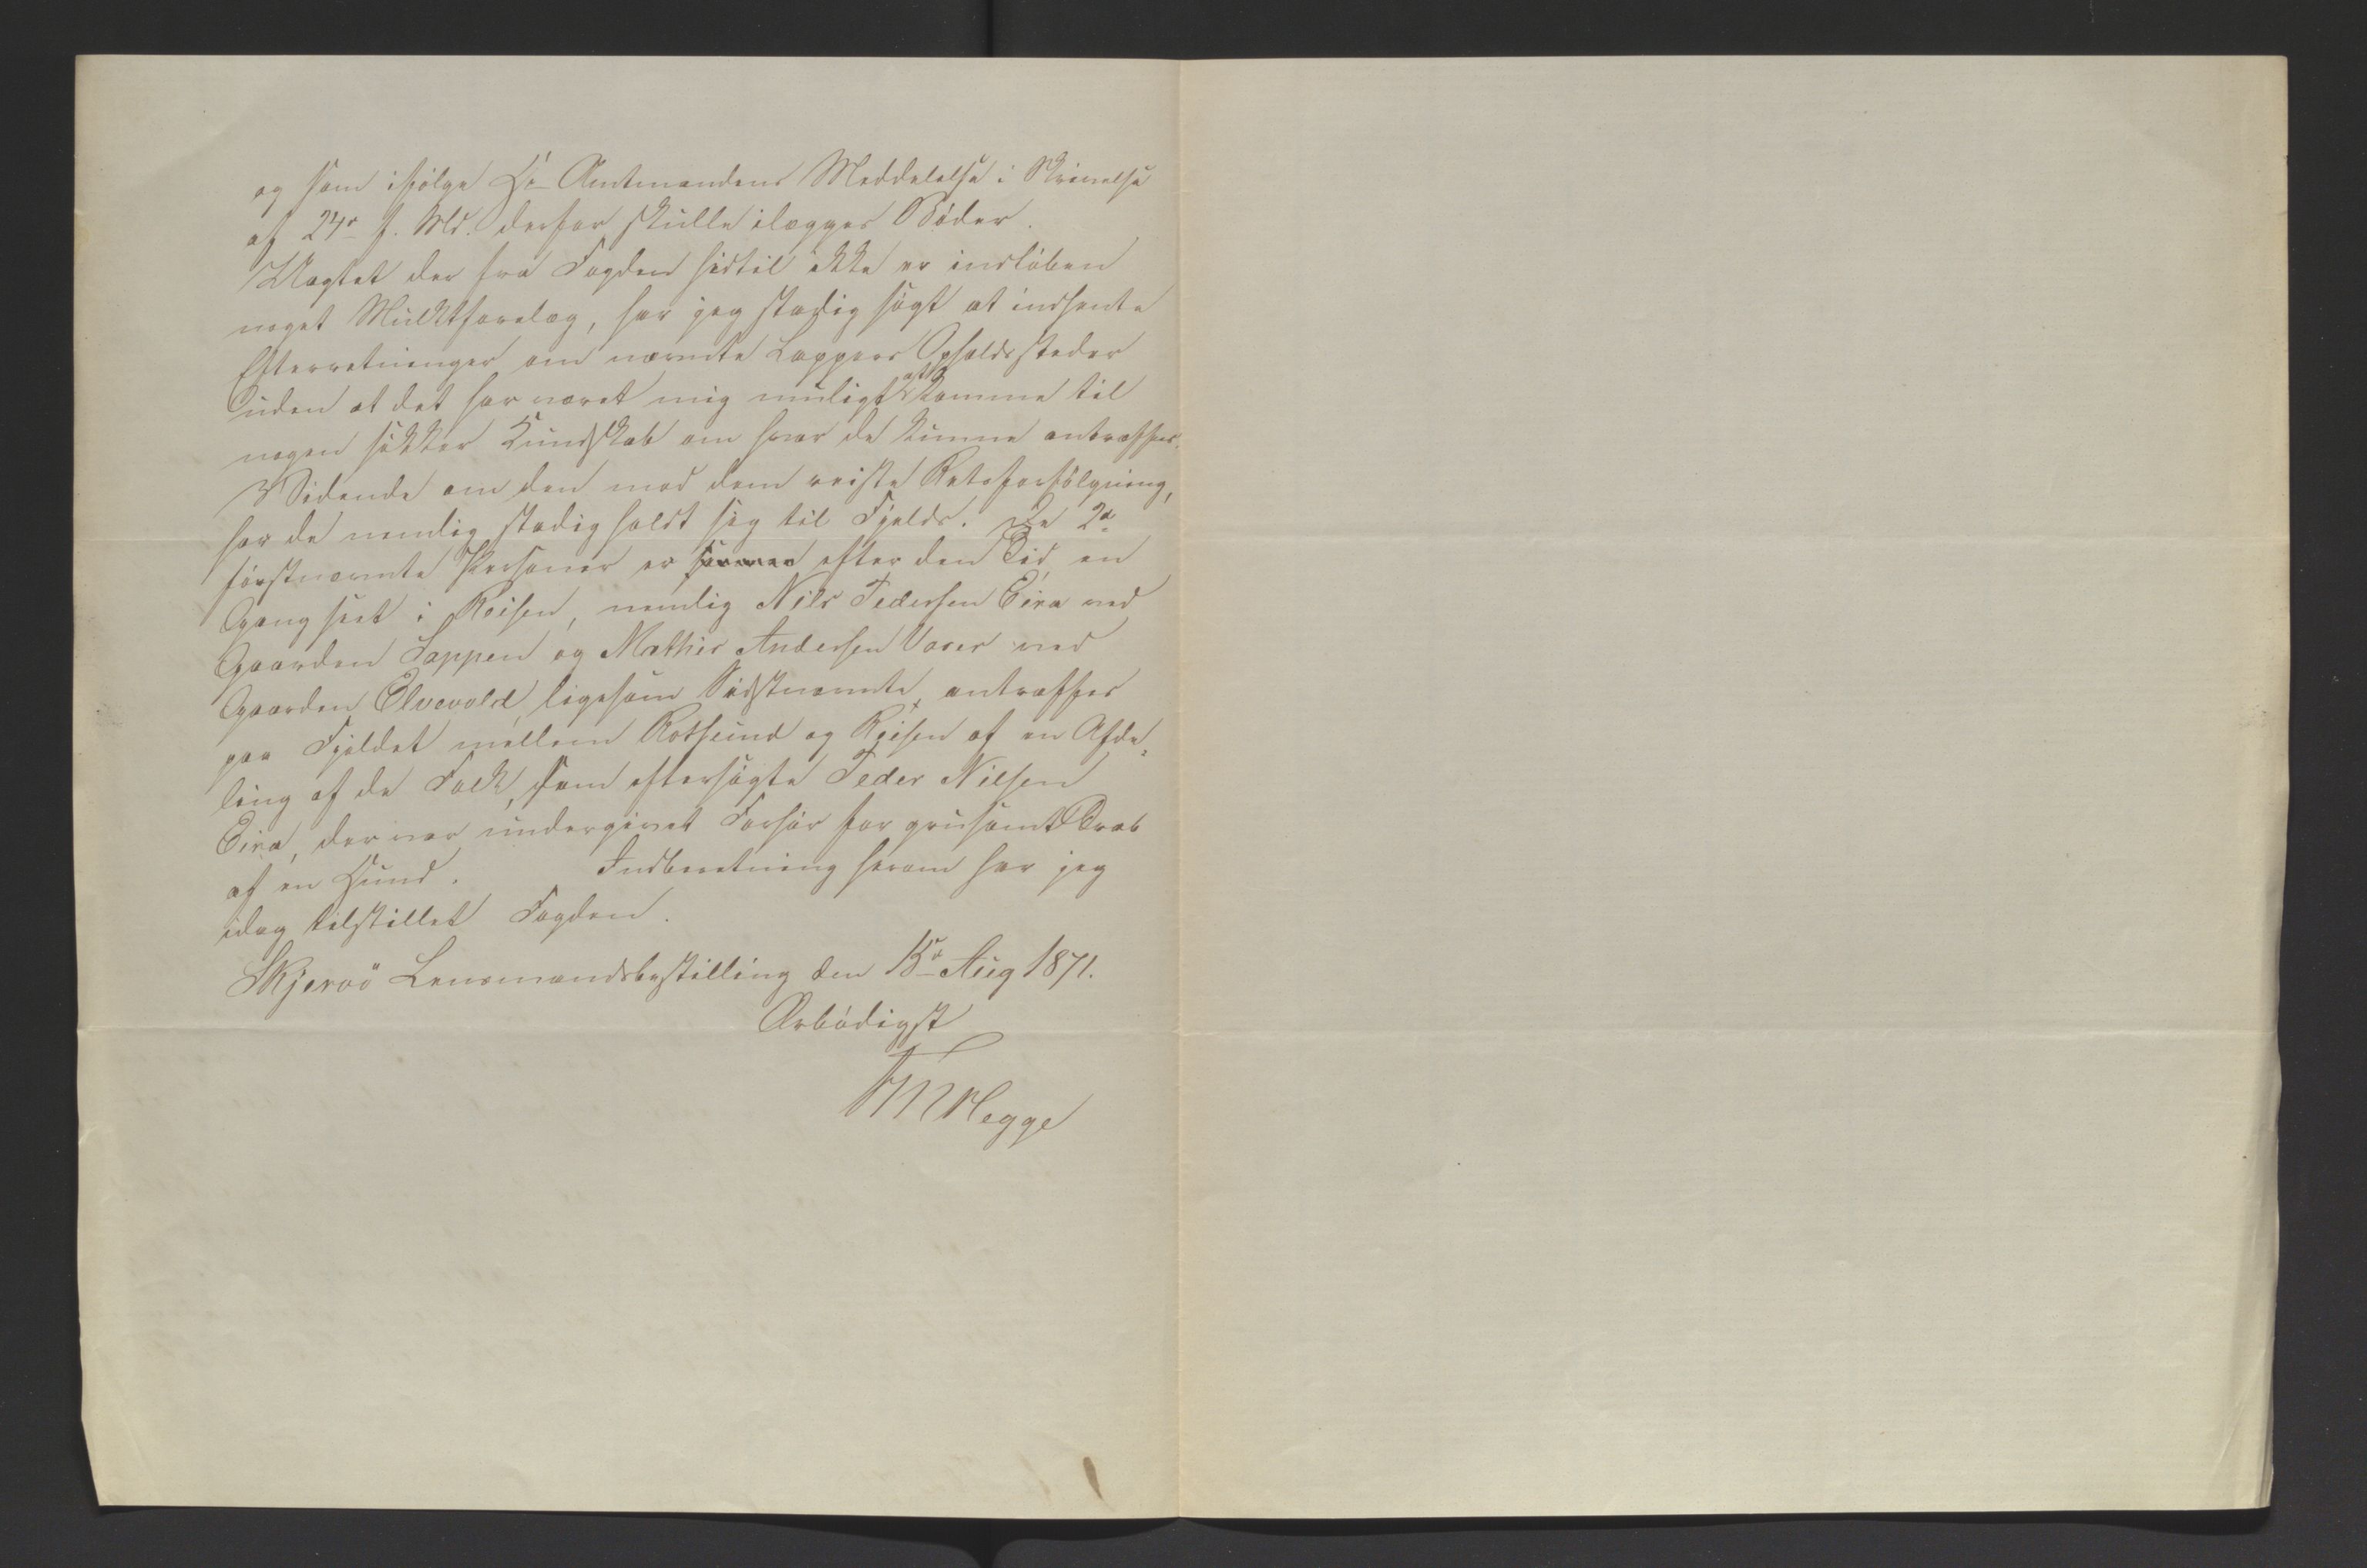 og som ifølge Hr Amtmandens Meddelelse i Skrivelse
af 24de f. Md. derfor skulle ilægges Bøder.
Uagtet der fra Fogden hidtil ikke er indløben
noget Mulktforelæg, har jeg stadig søgt at indhente
Efterretninger om nævnte Lappers Opholdssteder
uden at det har været mig muligt at komme til
nogen sikker Kundskab om hvor de kunne antræffes.
Vidende om den mod dem reiste Retsforfølgning,
har de nemlig stadig holdt sig til Fjelds. De 2de
førstnævnte Personer er efter den Tid en
Gang seet i Reisen, nemlig Nils Pedersen Eira ved
Gaarden Sappen og Mathis Andersen Vasar ved
Gaarden Elvevold, ligesom Sidstnævnte antræffes
paa Fjeldet mellem Rotsund og Reisen af en Afde=
ling af de Folk, som eftersøgte Peder Nilsen
Eira, der var undergivet Forhør for grusomt Drab
af en Hund. Indberetning herom har jeg
idag tilstillet Fogden.
Skjervö Lensmandsbestilling den 15de Aug 1871.
Ærbødigst
Hegge